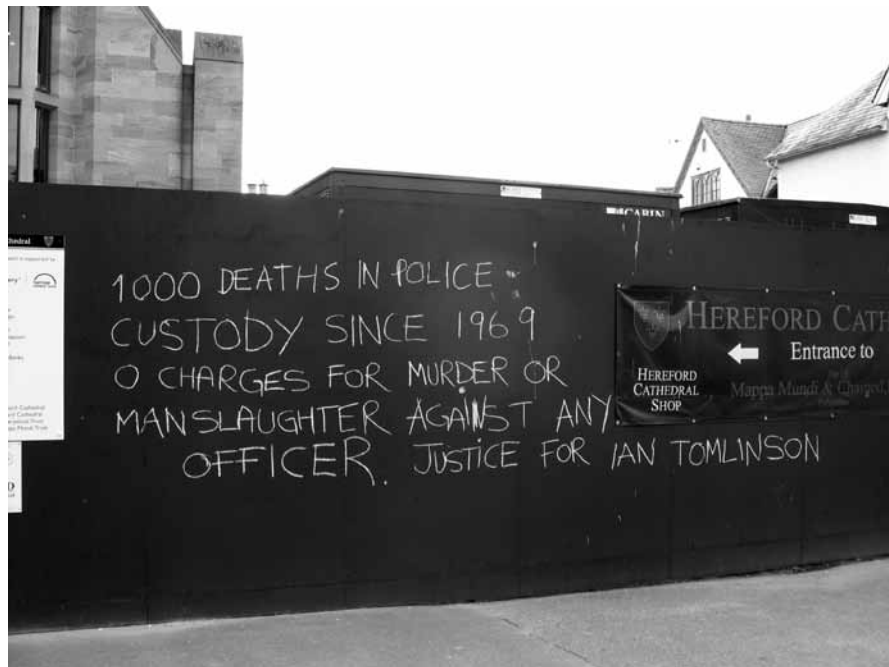 1000 DEATHS IN POLICE
CUSTODY SINCE 1969
0 CHARGES FOR MURDER OR
MANSLAUGHTER AGAINST ANY
OFFICER. JUSTICE FOR IAN TOMLINSON
HEREFORD CATH
Entrance to
Mappa Mundi & Chained
HEREFORD
CATHEDRAL
SHOP
CABIN
thedral